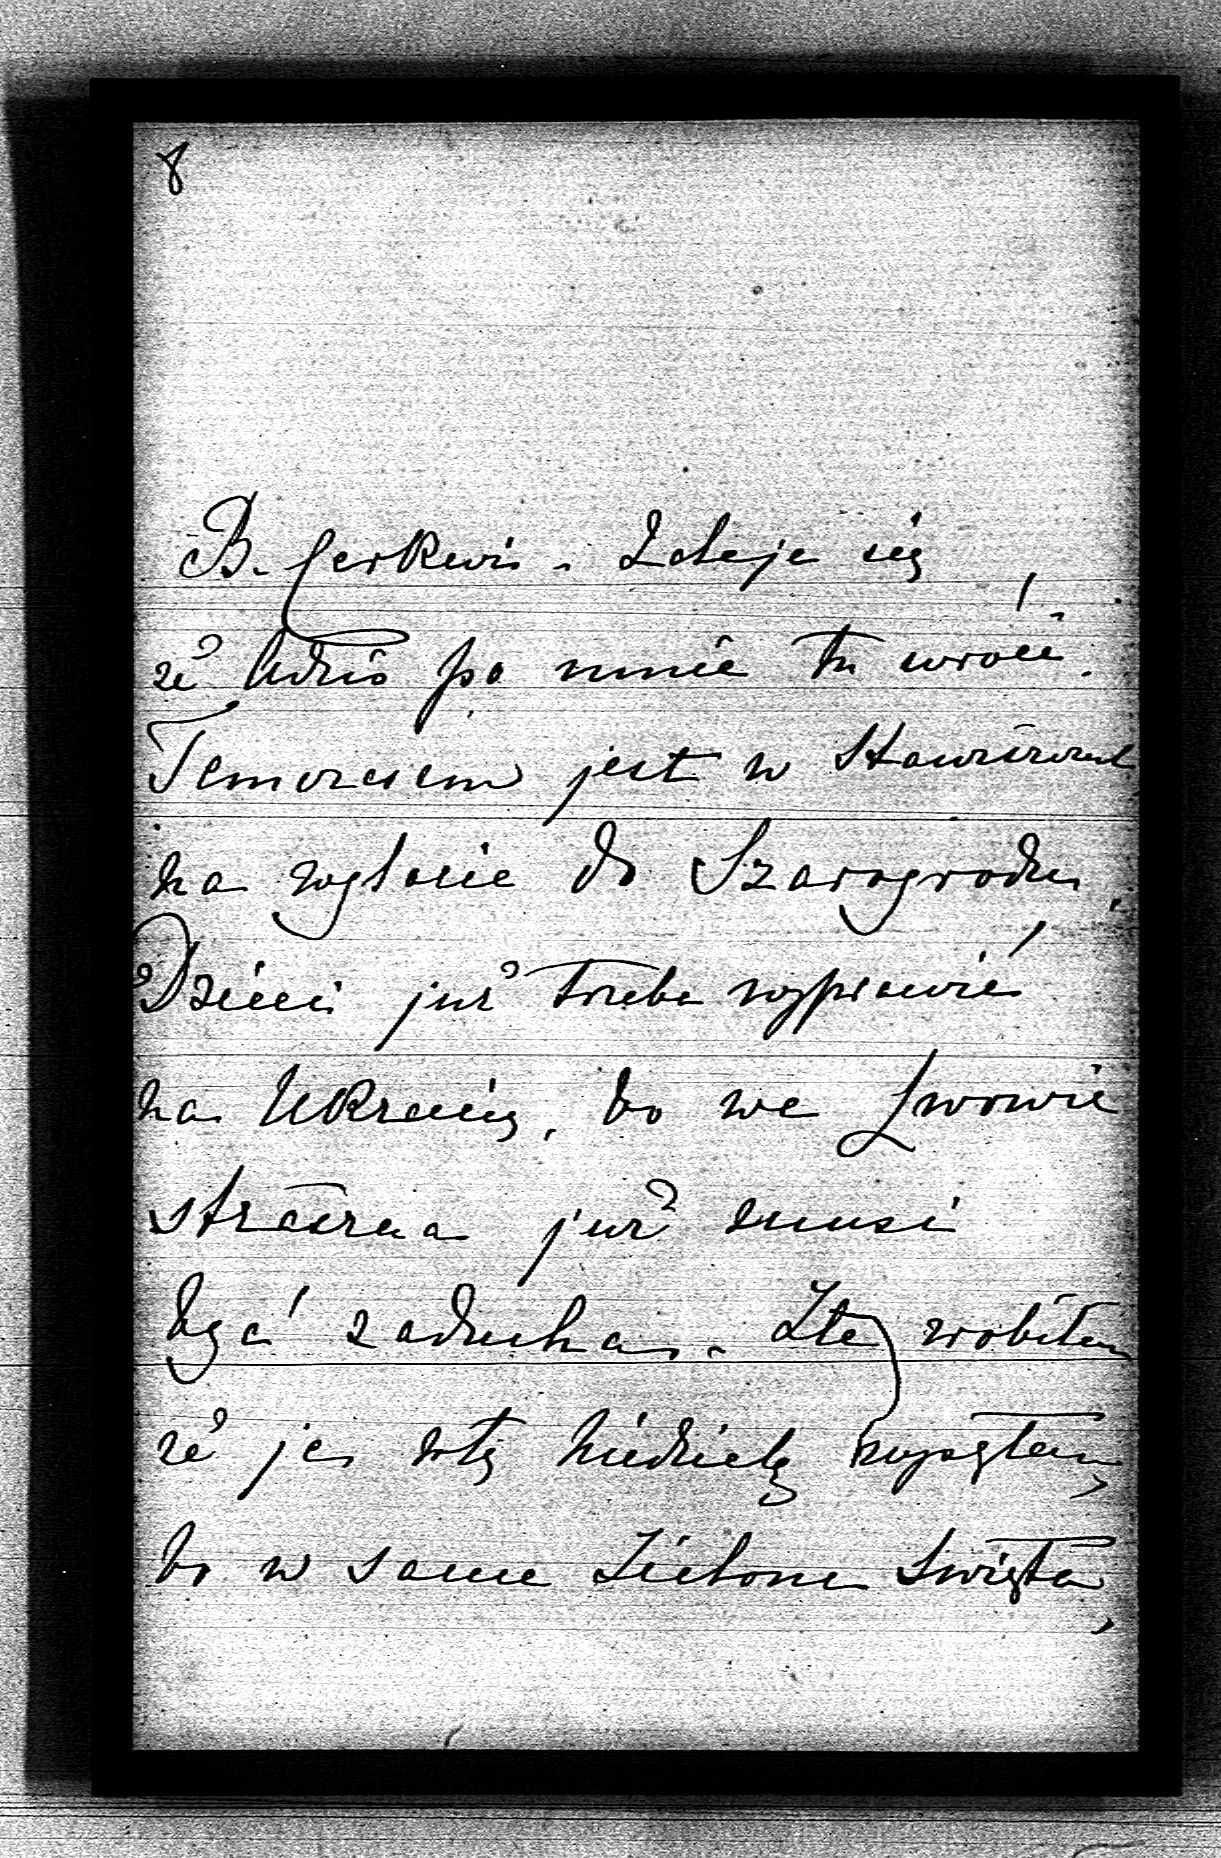 8
B. Cerkwi. Zdaje się
że Adzio po mnie tu wróci.
Tymczasem jest w
na wylocie do Szarogrodu
Dzieci już trzeba wyprawić
na Ukrainę, bo we Lwowie
straszna już musi
być zaducha. Źle zrobiłem
że je w tę Niedzielę wysyłam,
bo w same Zielone Swięta,